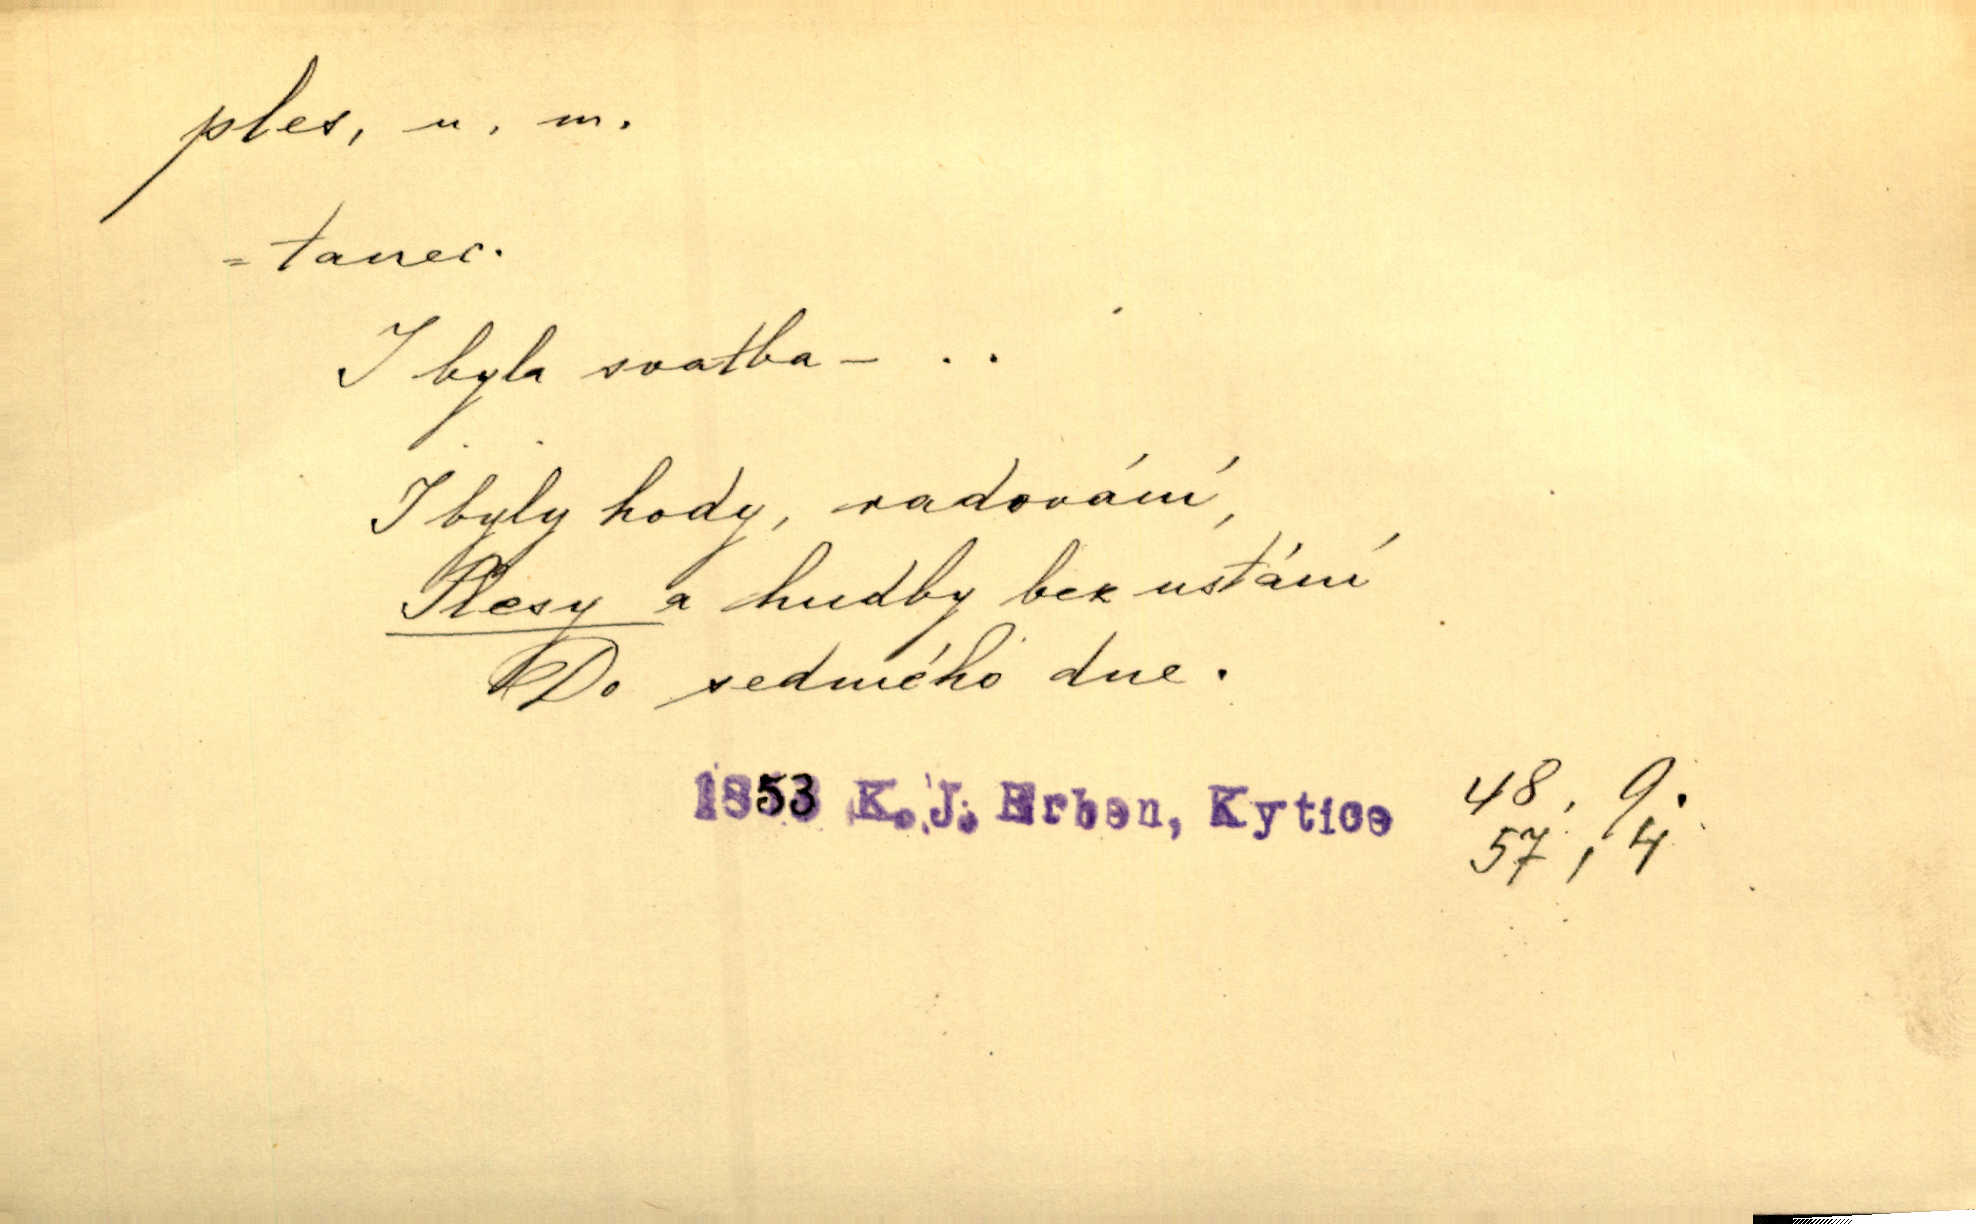 ples, u, m.
= tanec.
I byla svatba – . .
I byly hody, radování,
Plesy a hudby bez ustání
Do sedmého dne.
1853 K. J. Erben, Kytice 48, 9.
57, 4